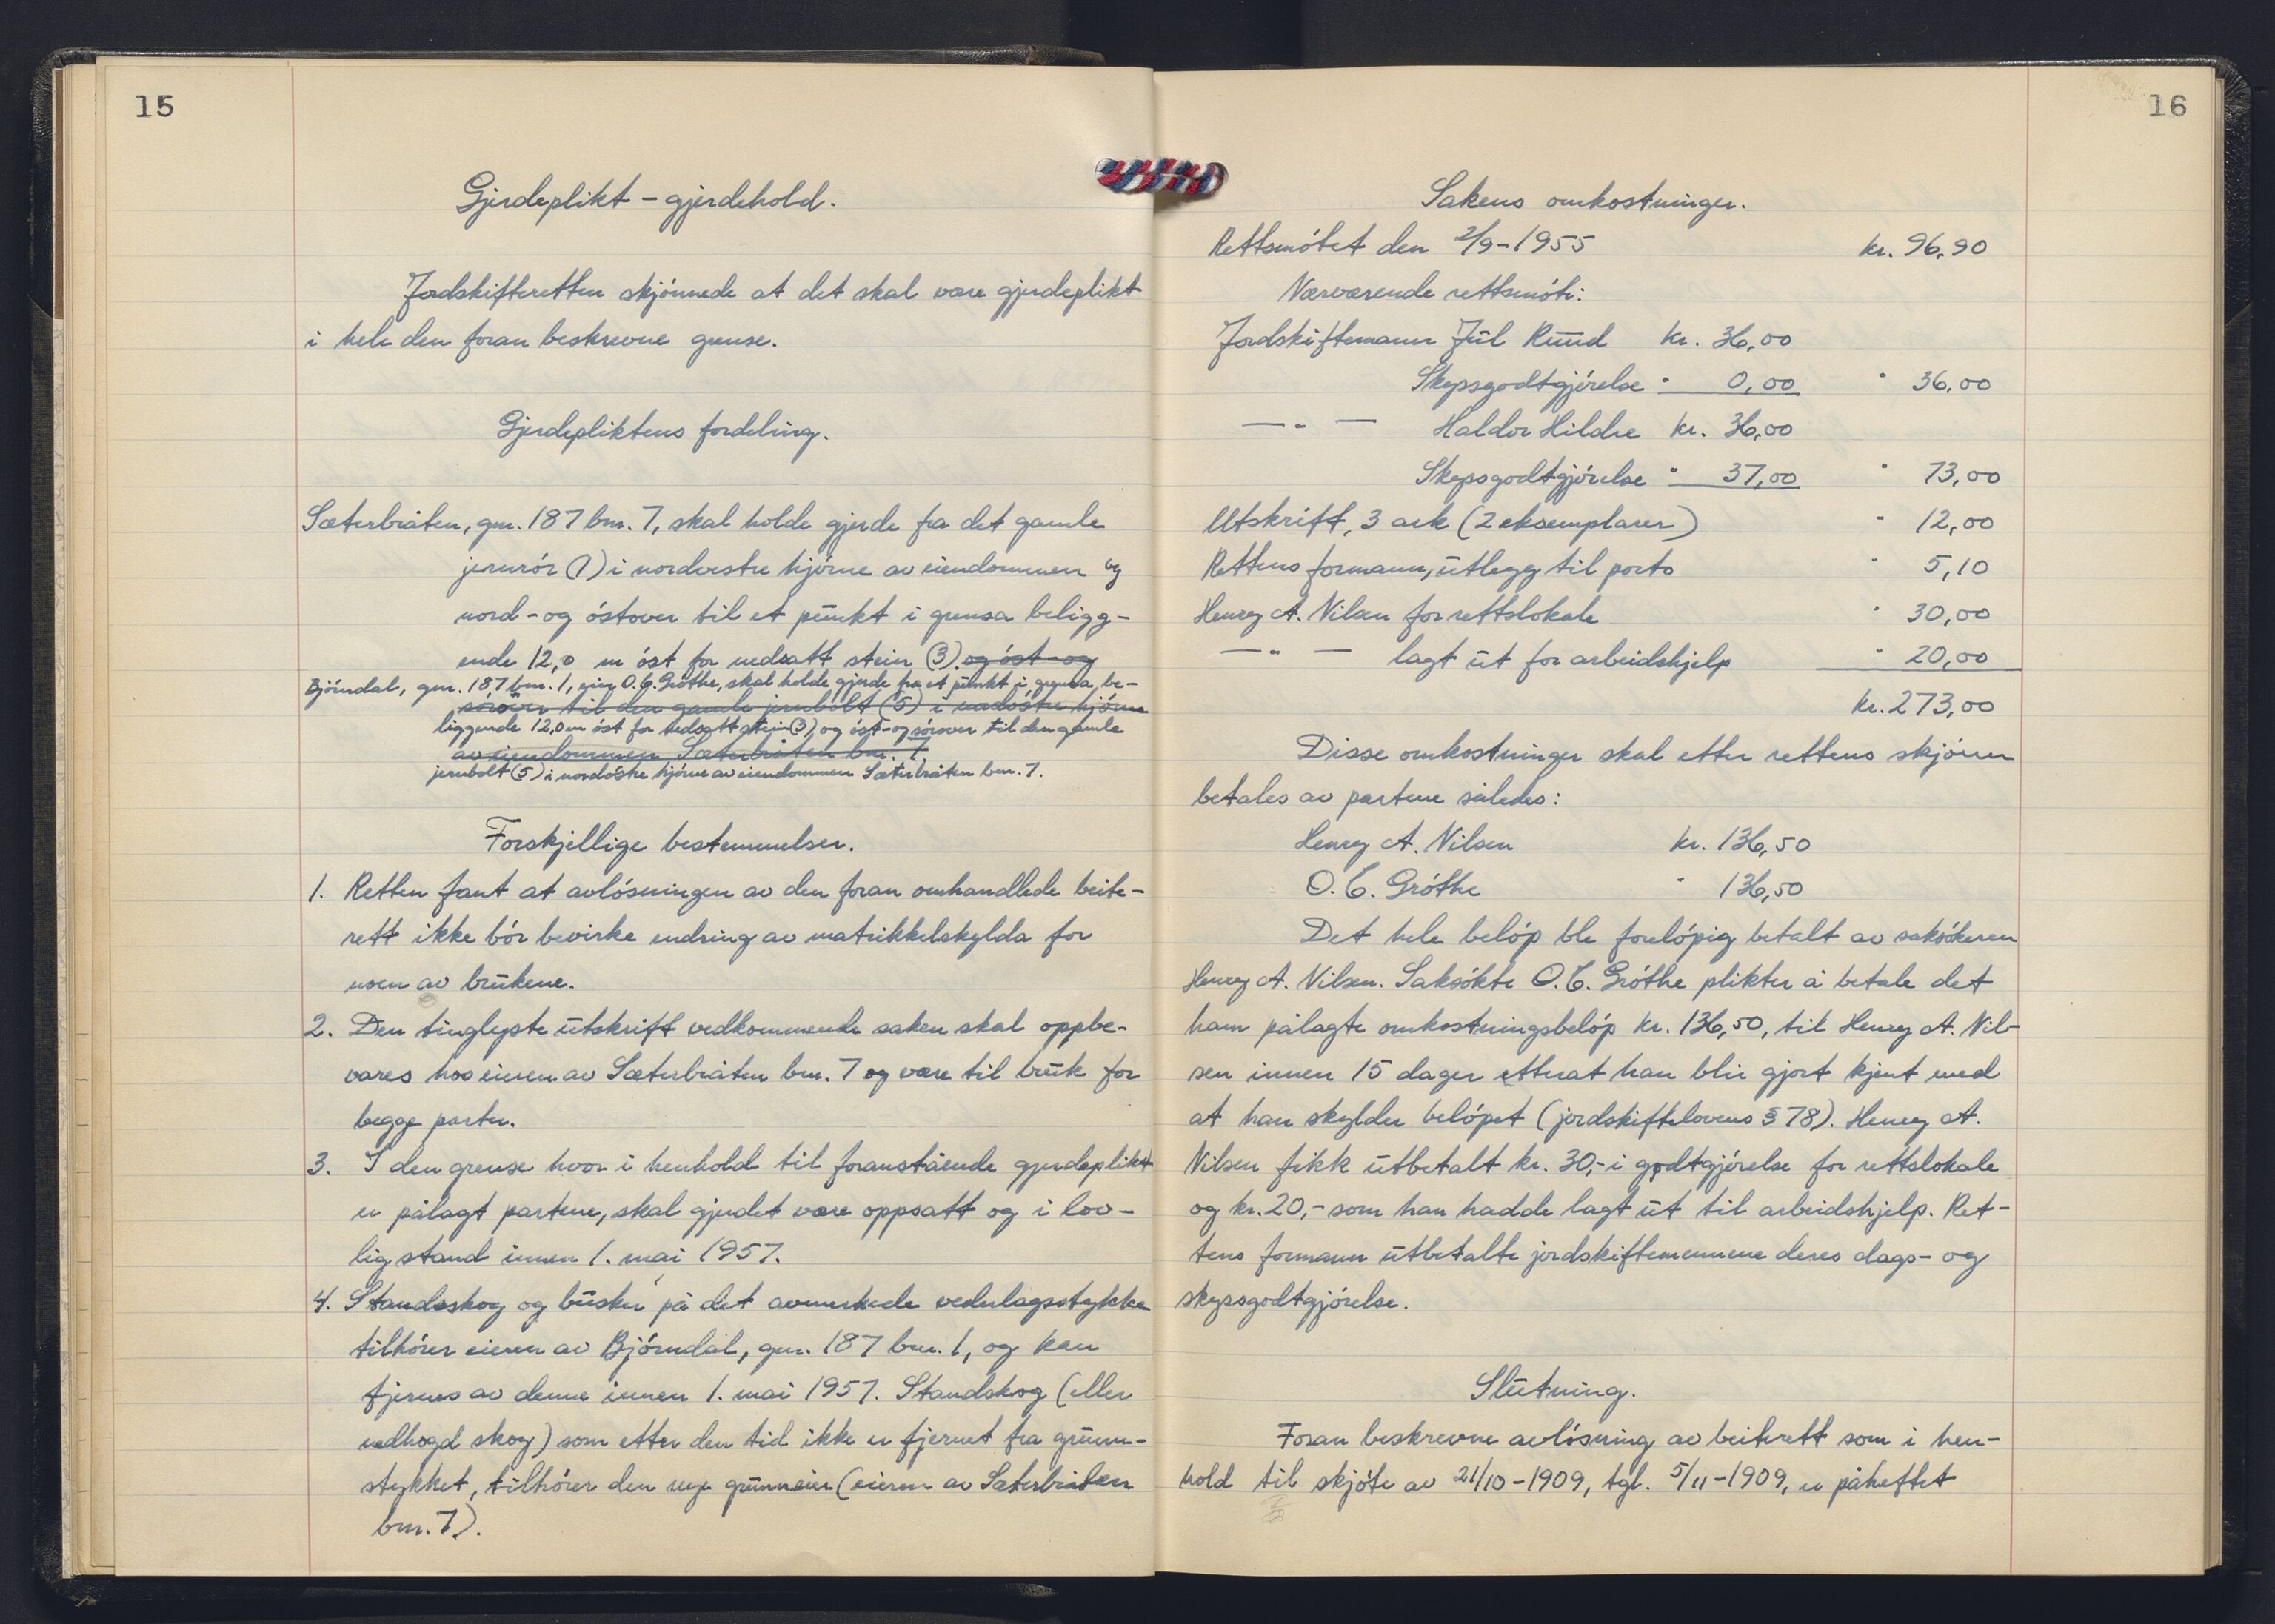 15
Gjerdeplikt - gjerdehold.
Jordskifteretten skjønnede at det skal være gjerdeplikt
i hele den foran beskrevne grense.
Gjerdepliktens fordeling.
Sæterbråten, gnr. 187 bnr. 7, skal holde gjerde fra det gamle
jernrør (1) i nordvestre hjørne av eiendommen og
nord- og østover til et punkt i grensa beligg-
ende 12,0 m øst for nedsatt stein (3). og øst- og
Bjørndal, gnr. 187 bnr. 1, eier O. C. Grøthe, skal holde gjerde fra et punkt i grensa be-
sørover til den gamle jernbolt (5) i nordøstre hjørne
liggende 12,0 m øst for nedsatt stein (3), og øst- og sørover til den gamle
av eiendommen Sæterbråten bnr. 7.
jernbolt (5) i nordøstre hjørne av eiendommen Sæterbråten bnr. 7.
Forskjellige bestemmelser.
1. Retten fant at avløsningen av den foran omhandlede beite-
rett ikke bør bevirke endring av matrikkelskylda for
noen av brukene.
2. Den tinglyste utskrift vedkommende saken skal oppbe-
vares hos eieren av Sæterbråten bnr. 7 og være til bruk for
begge parter.
3. I den grense hvor i henhold til foranstående gjerdeplikt
er pålagt partene, skal gjerdet være oppsatt og i lov-
lig stand innen 1. mai 1957.
4. Standskog og busker på det avmerkede vederlagsstykke
tilhører eieren av Bjørndal, gnr. 187 bnr. 1, og kan
fjernes av denne innen 1. mai 1957. Standskog (eller
nedhogd skog) som etter den tid ikke er fjernet fra grunn-
stykket, tilhører den nye grunneier (eieren av Sæterbråten
bnr. 7).
16
Sakens omkostninger.
Rettsmøtet den 2/9-1955 kr. 96,90
Nærværende rettsmøte:
Jordskiftemann Jul Ruud kr. 36,00
Skyssgodtgjørelse " 0,00 " 36,00
— " — Haldor Hildre kr. 36,00
Skyssgodtgjørelse " 37,00 " 73,00
Utskrift, 3 ark (2 eksemplarer) " 12,00
Rettens formann, utlegg til porto " 5,10
Henry A. Nilsen for rettslokale " 30,00
— " — lagt ut for arbeidshjelp " 20,00
kr. 273,00
Disse omkostninger skal etter rettens skjønn
betales av partene således:
Henry A. Nilsen kr. 136,50
O. C. Grøthe " 136,50
Det hele beløp ble foreløpig betalt av saksøkeren
Henry A. Nilsen. Saksøkte O. C. Grøthe plikter å betale det
ham pålagte omkostningsbeløp kr. 136,50, til Henry A. Nil-
sen innen 15 dager etterat han blir gjort kjent med
at han skylder beløpet (jordskiftelovens § 78). Henry A.
Nilsen fikk utbetalt kr. 30,- i godtgjørelse for rettslokale
og kr. 20,- som han hadde lagt ut til arbeidshjelp. Ret-
tens formann utbetalte jordskiftemennene deres dags- og
skyssgodtgjørelse.
Slutning.
Foran beskrevne avløsning av beiterett som i hen-
hold til skjøte av 21/10-1909, tgl. 5/11-1909, er påheftet